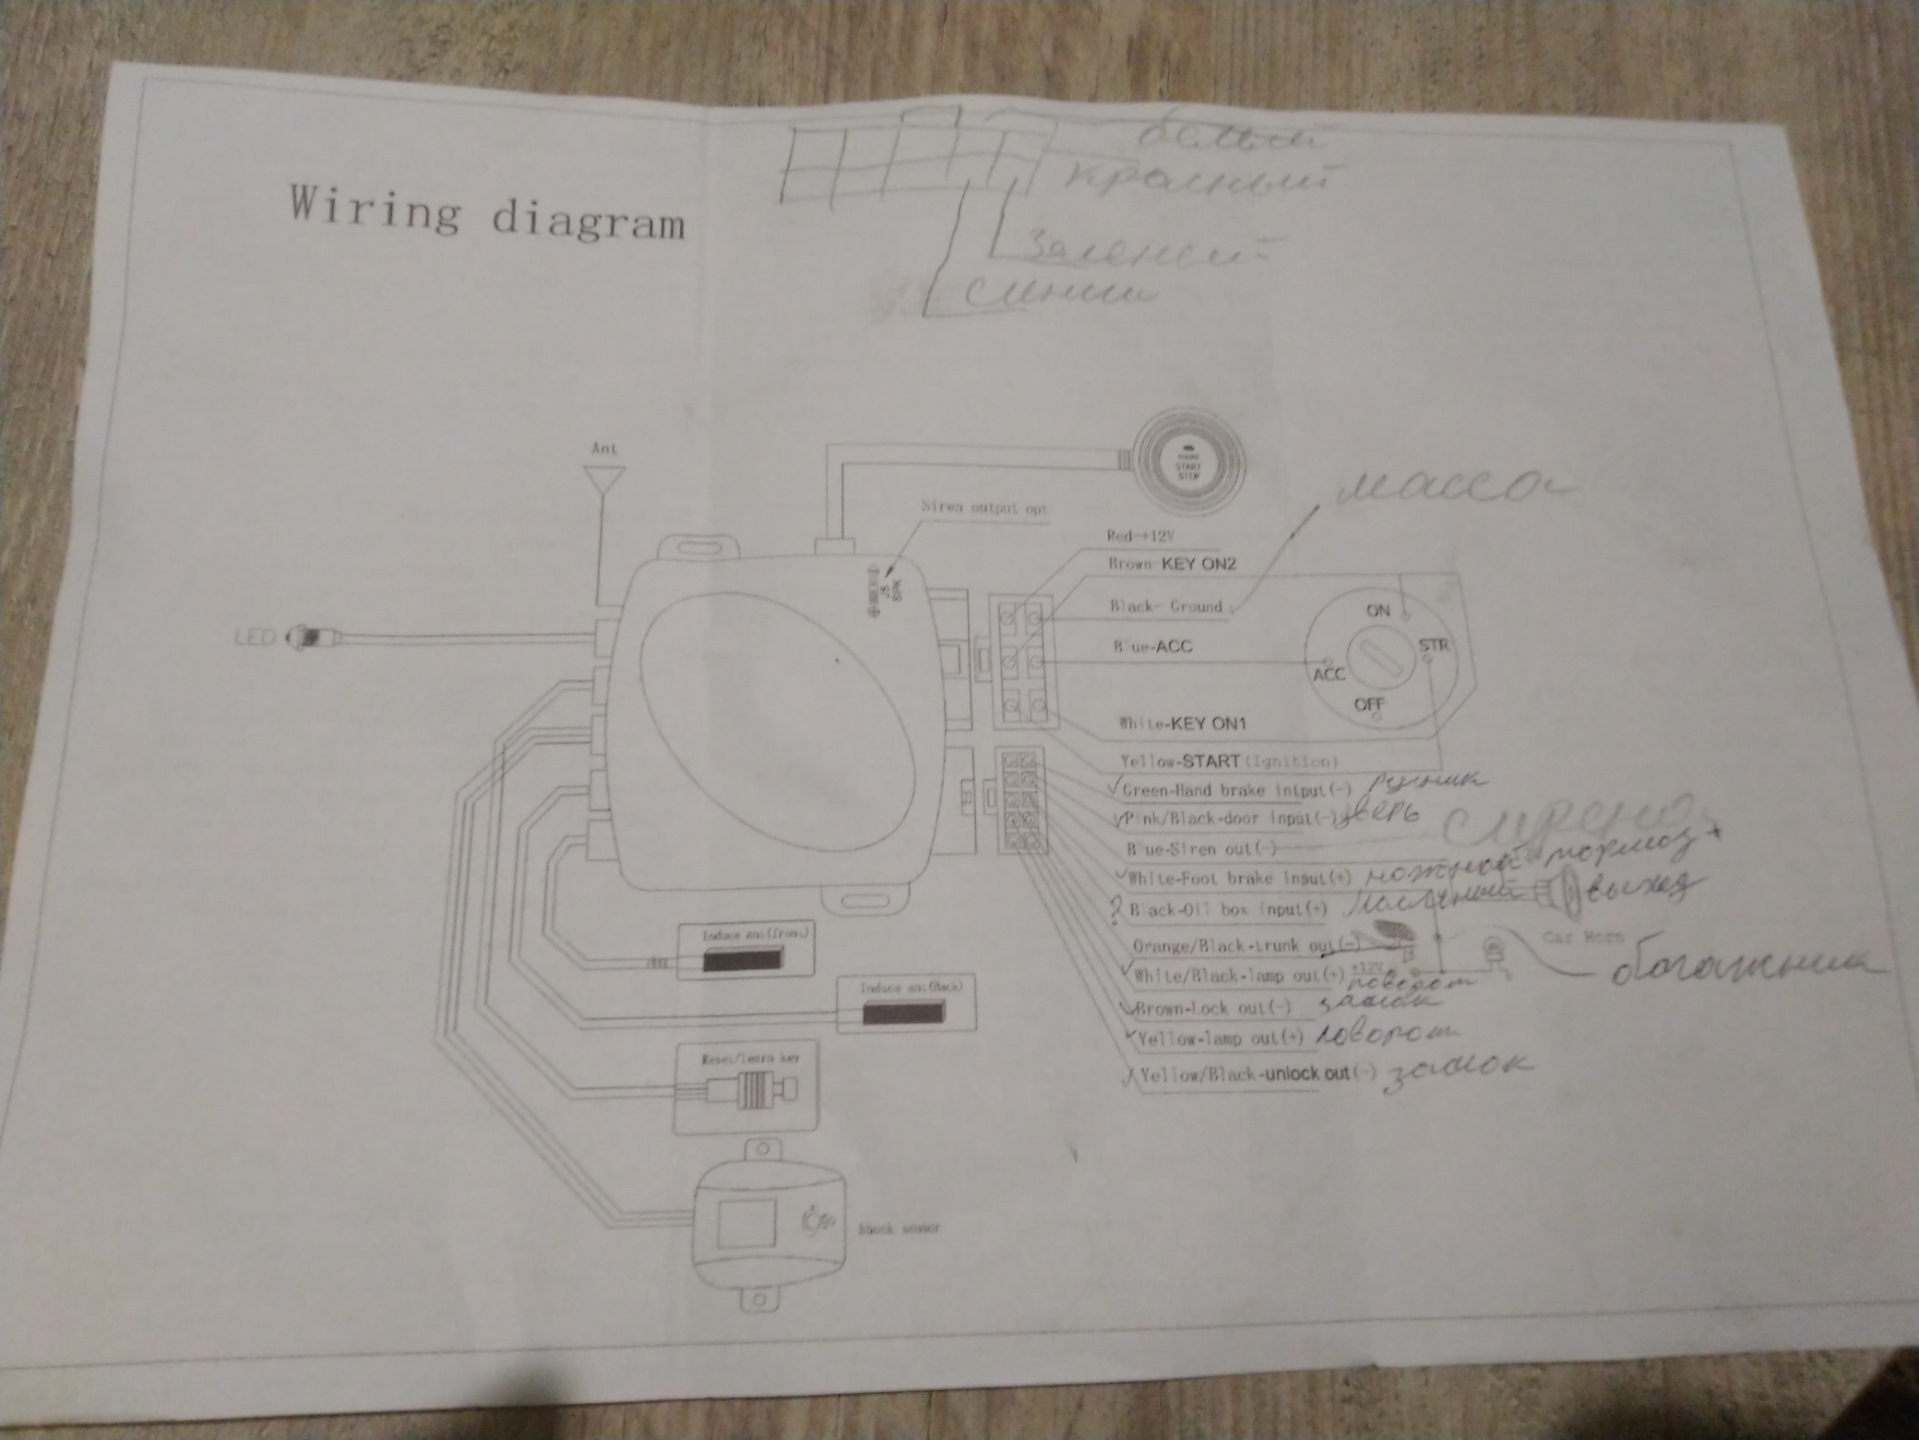 белый
красный
Wiring diagram
Зеленый
синий
Ant
START
STOP
масса
Siren output opt
Red-+12V
Brown-KEY ON2
J5
SPK
Black- Ground
ON
LED
Blue-ACC
STR
ACC
OFF
White-KEY ON1
Yellow-START(Ignition)
Green-Hand brake intput(-) ручник
Pink/Black-door input(-) дверь
Blue-Siren out(-) сирена
White-Foot brake input(+) ножной тормоз +
? Black-Oil box input(+) выход
Induce ant(front)
Orange/Black-trunk out(-)
Car Horn
White/Black-lamp out(+) +12V поворот
багажник
Induce ant(Back)
Brown-Lock out(-) замок
Yellow-lamp out(+) поворот
Reset/learn key
Yellow/Black-unlock out(-) замок
Shock sensor